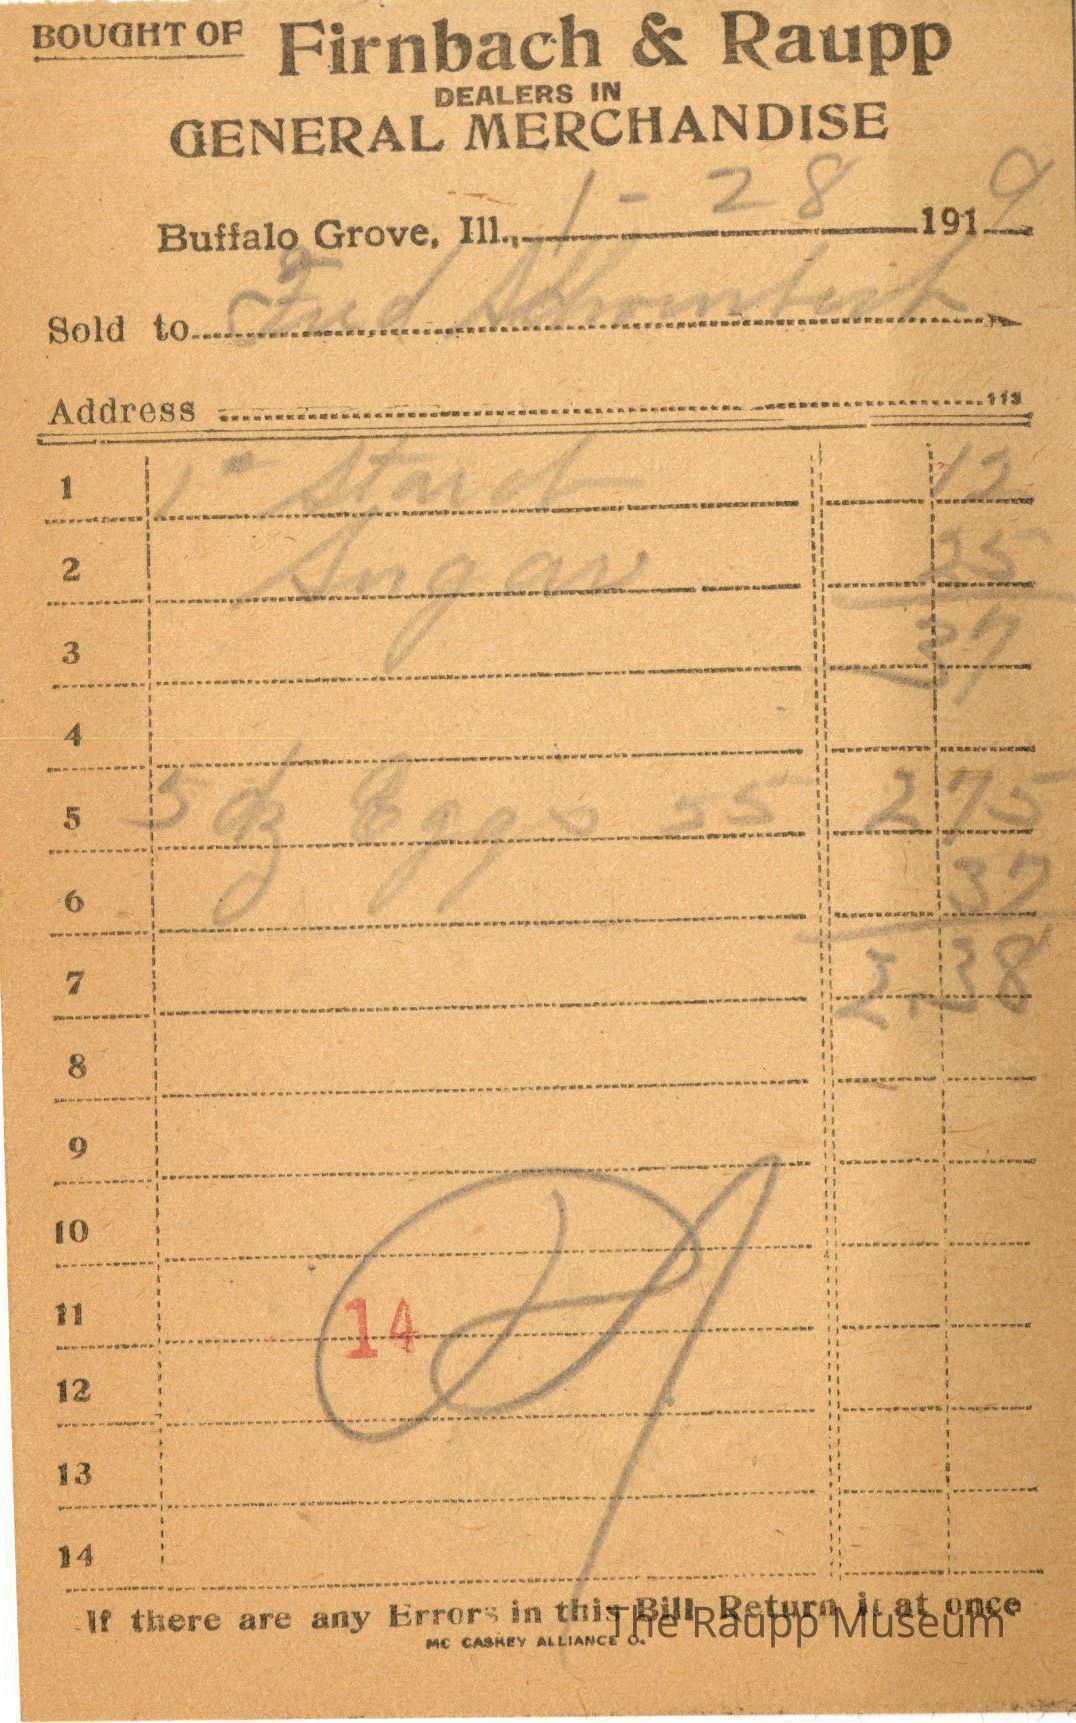 BOUGHT OF Firnbach & Raupp
DEALERS IN
GENERAL MERCHANDISE
Buffalo Grove, Ill., 1-28 1919
Sold to Fred
Address 113
1 1# Starch 12
2 Sugar 25
3 37
4
5 5 dz Eggs 55 2 75
6 37
7 2.38
8
9
10
11 14
12
13
14
If there are any Errors in this Bill Return it at once
The Raupp Museum
MC CASKEY ALLIANCE O.